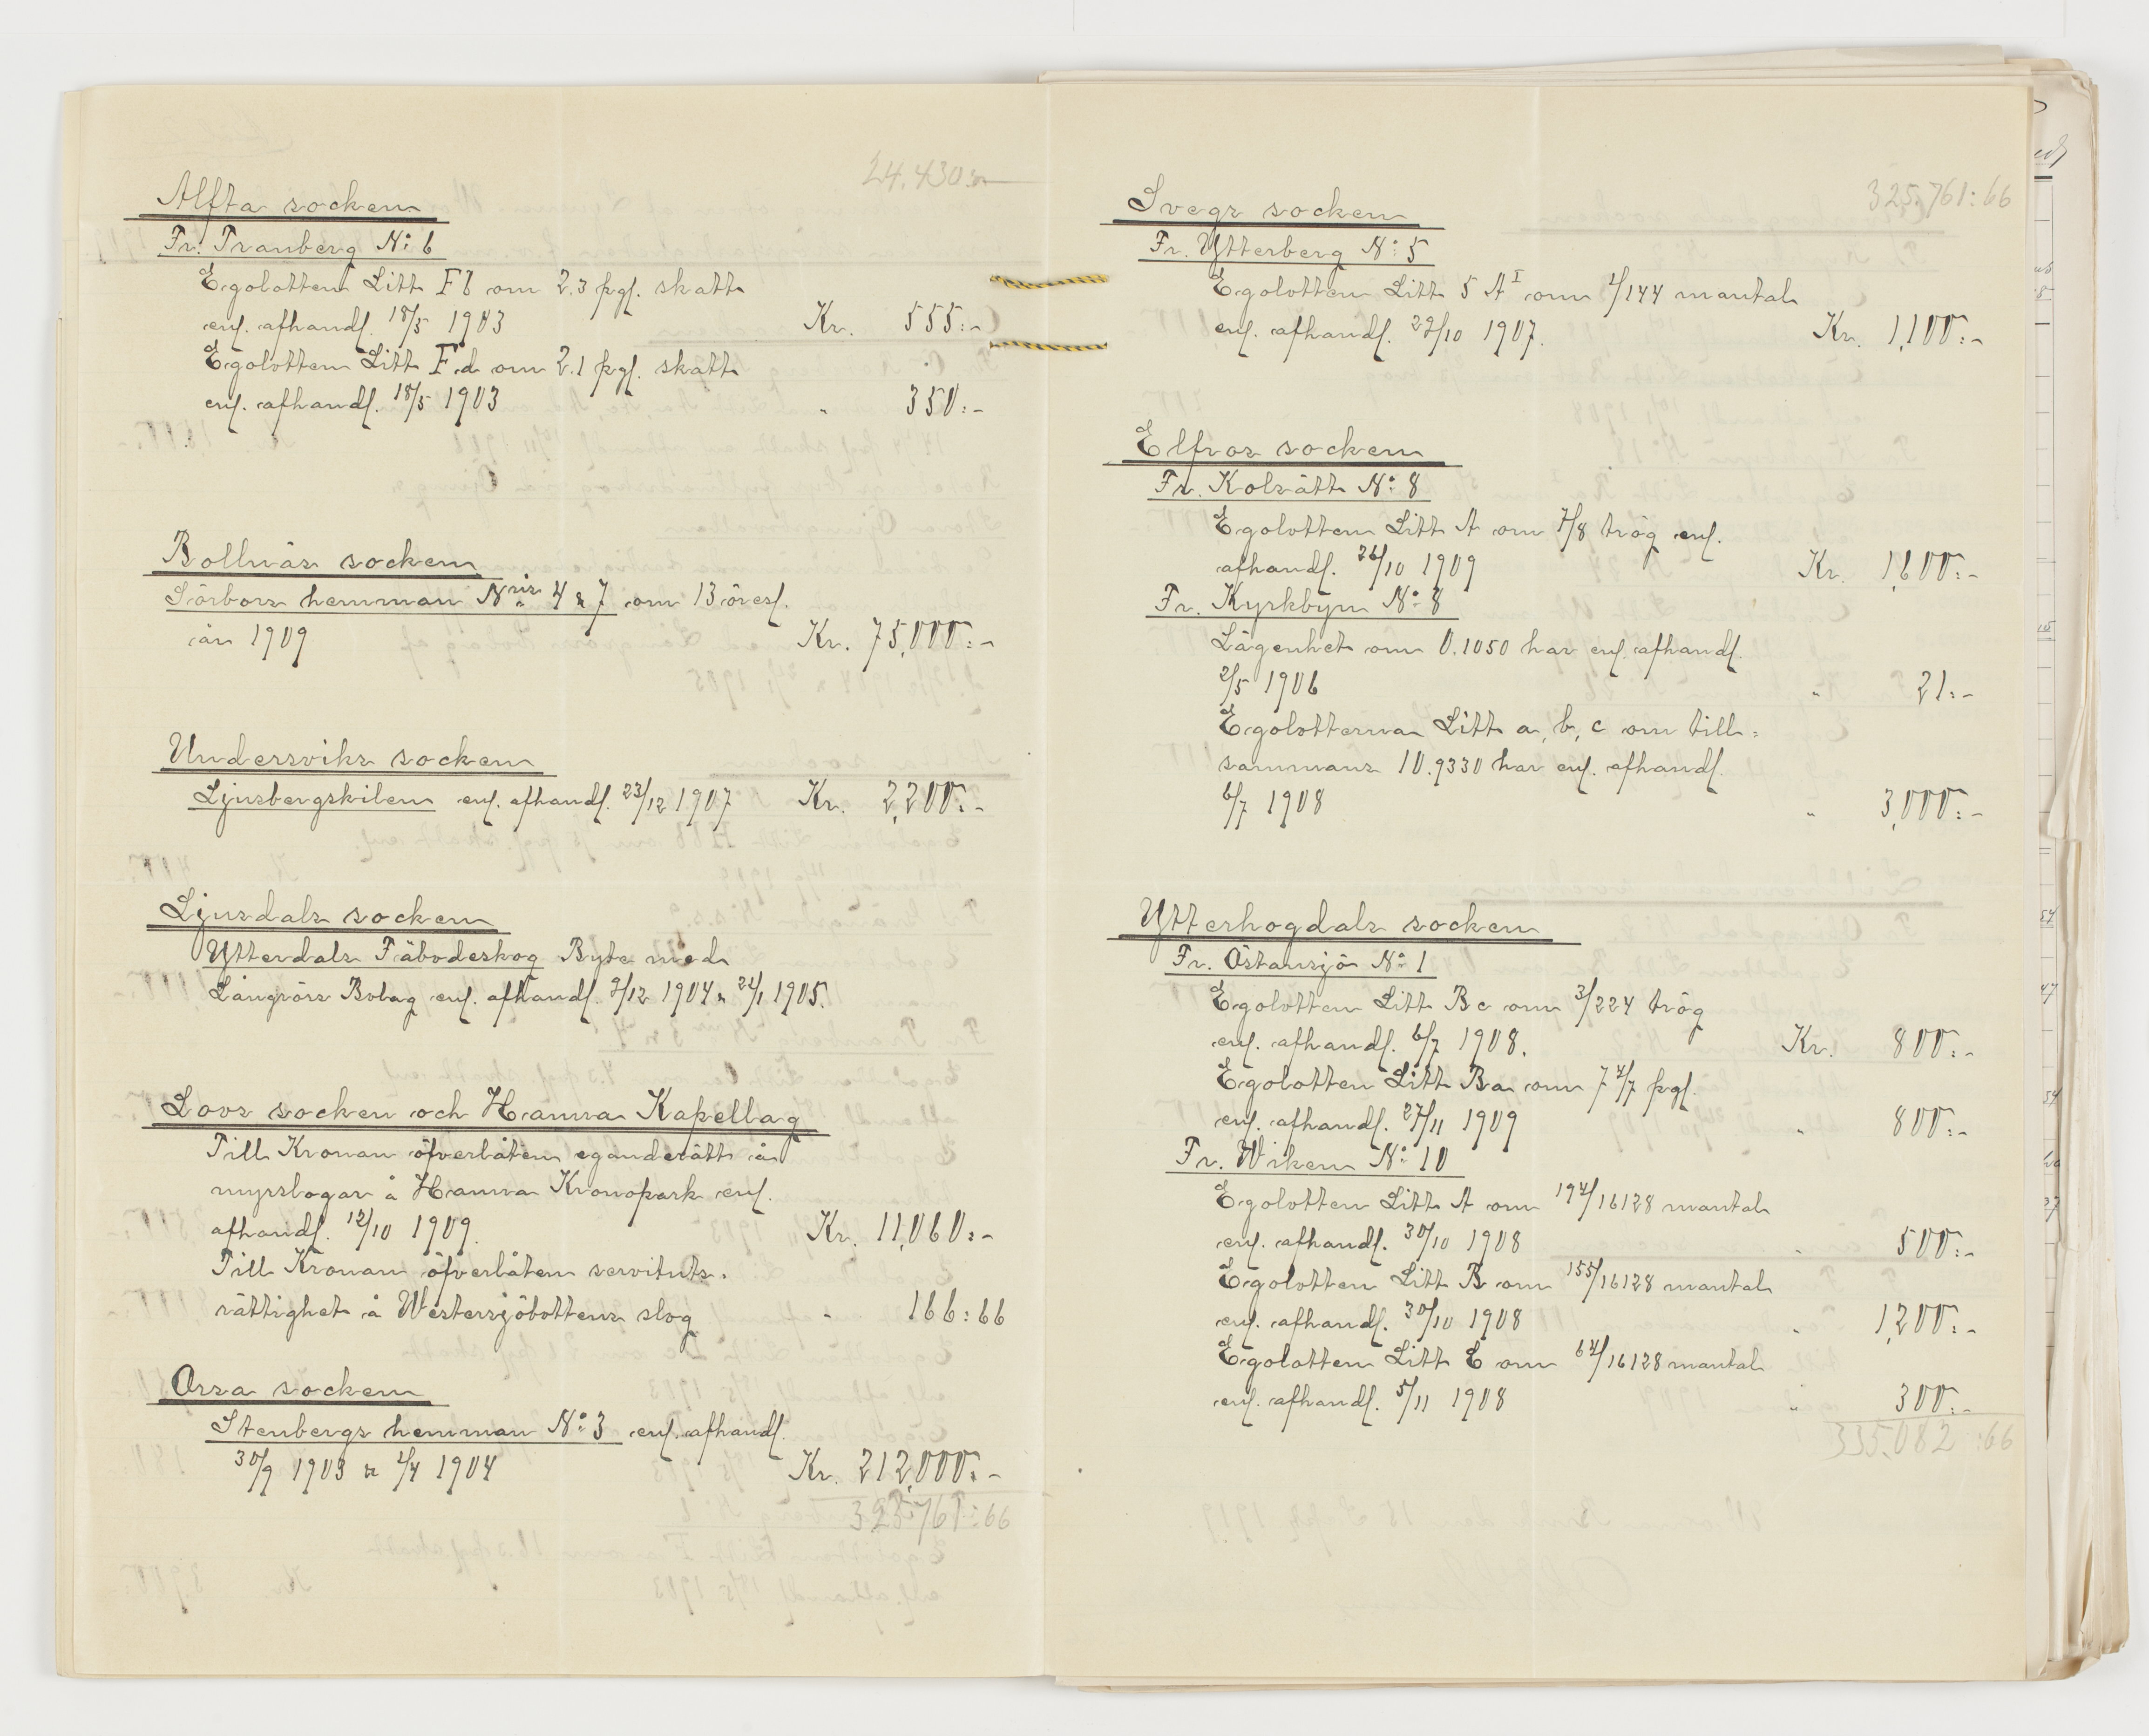 24.430:-
Alfta socken
Fr. Tranberg No: 6
Egolotten Litt Fb om 2.3 pgl. skatt
enl. afhandl. 18/5 1903 Kr. 555:-
Egolotten Litt Fd om 2.1 pgl. skatt
enl. afhandl. 18/5 1903 " 350:-
Bollnäs socken
Sörbors hemman Nris 4 & 7 om 13 öresl.
år 1909 Kr. 75,000:-
Undersviks socken
Ljusbergskilen enl. afhandl. 23/12 1907 Kr. 2,200:-
Ljusdals socken
Ytterdals Fäbodeskog Byte med
Långrörs Bolag enl. afhandl. 9/12 1904 & 24/1 1905.
Loos socken och Hamra Kapellag
Till Kronan öfverlåten eganderätt å
myrslogar å Hamra Kronopark enl.
afhandl. 12/10 1909. Kr. 11,060:-
Till Kronan öfverlåten servituts-
rättighet å Westersjöbottens slog " 166:66
Orsa socken
Stenbergs hemman No: 3 enl. afhandl.
30/9 1903 & 2/4 1904 Kr. 212,000:-
325,761:66
325,761:66
Svegs socken
Fr. Ytterberg No: 5
Egolotten Litt 5 A I om 1/144 mantal
enl. afhandl. 29/10 1907. Kr. 1,100:-
Elfros socken
Fr. Kolsätt No: 8
Egolotten Litt A om 7/8 tråg enl.
afhandl. 26/10 1909 Kr. 1,600:-
Fr. Kyrkbyn No: 8
Lägenhet om 0.1050 har enl. afhandl.
2/5 1906 " 21:-
Egolotterna Litt a, b, c om till-
sammans 10.9330 har enl. afhandl.
6/7 1908 " 3,000:-
Ytterhogdals socken
Fr. Östansjö No: 1
Egolotten Litt Bc om 3/224 tråg
enl. afhandl. 6/7 1908. Kr. 800:-
Egolotten Litt Ba om 7 4/7 pgl.
enl. afhandl. 27/11 1909 " 800:-
Fr. Wiken No: 10
Egolotten Litt A om 194/16128 mantal
enl. afhandl. 30/10 1908 " 500:-
Egolotten Litt B om 155/16128 mantal
enl. afhandl. 30/10 1908 " 1,200:-
Egolotten Litt E om 64/16128 mantal
enl. afhandl. 5/11 1908 " 300:-
335,082:66